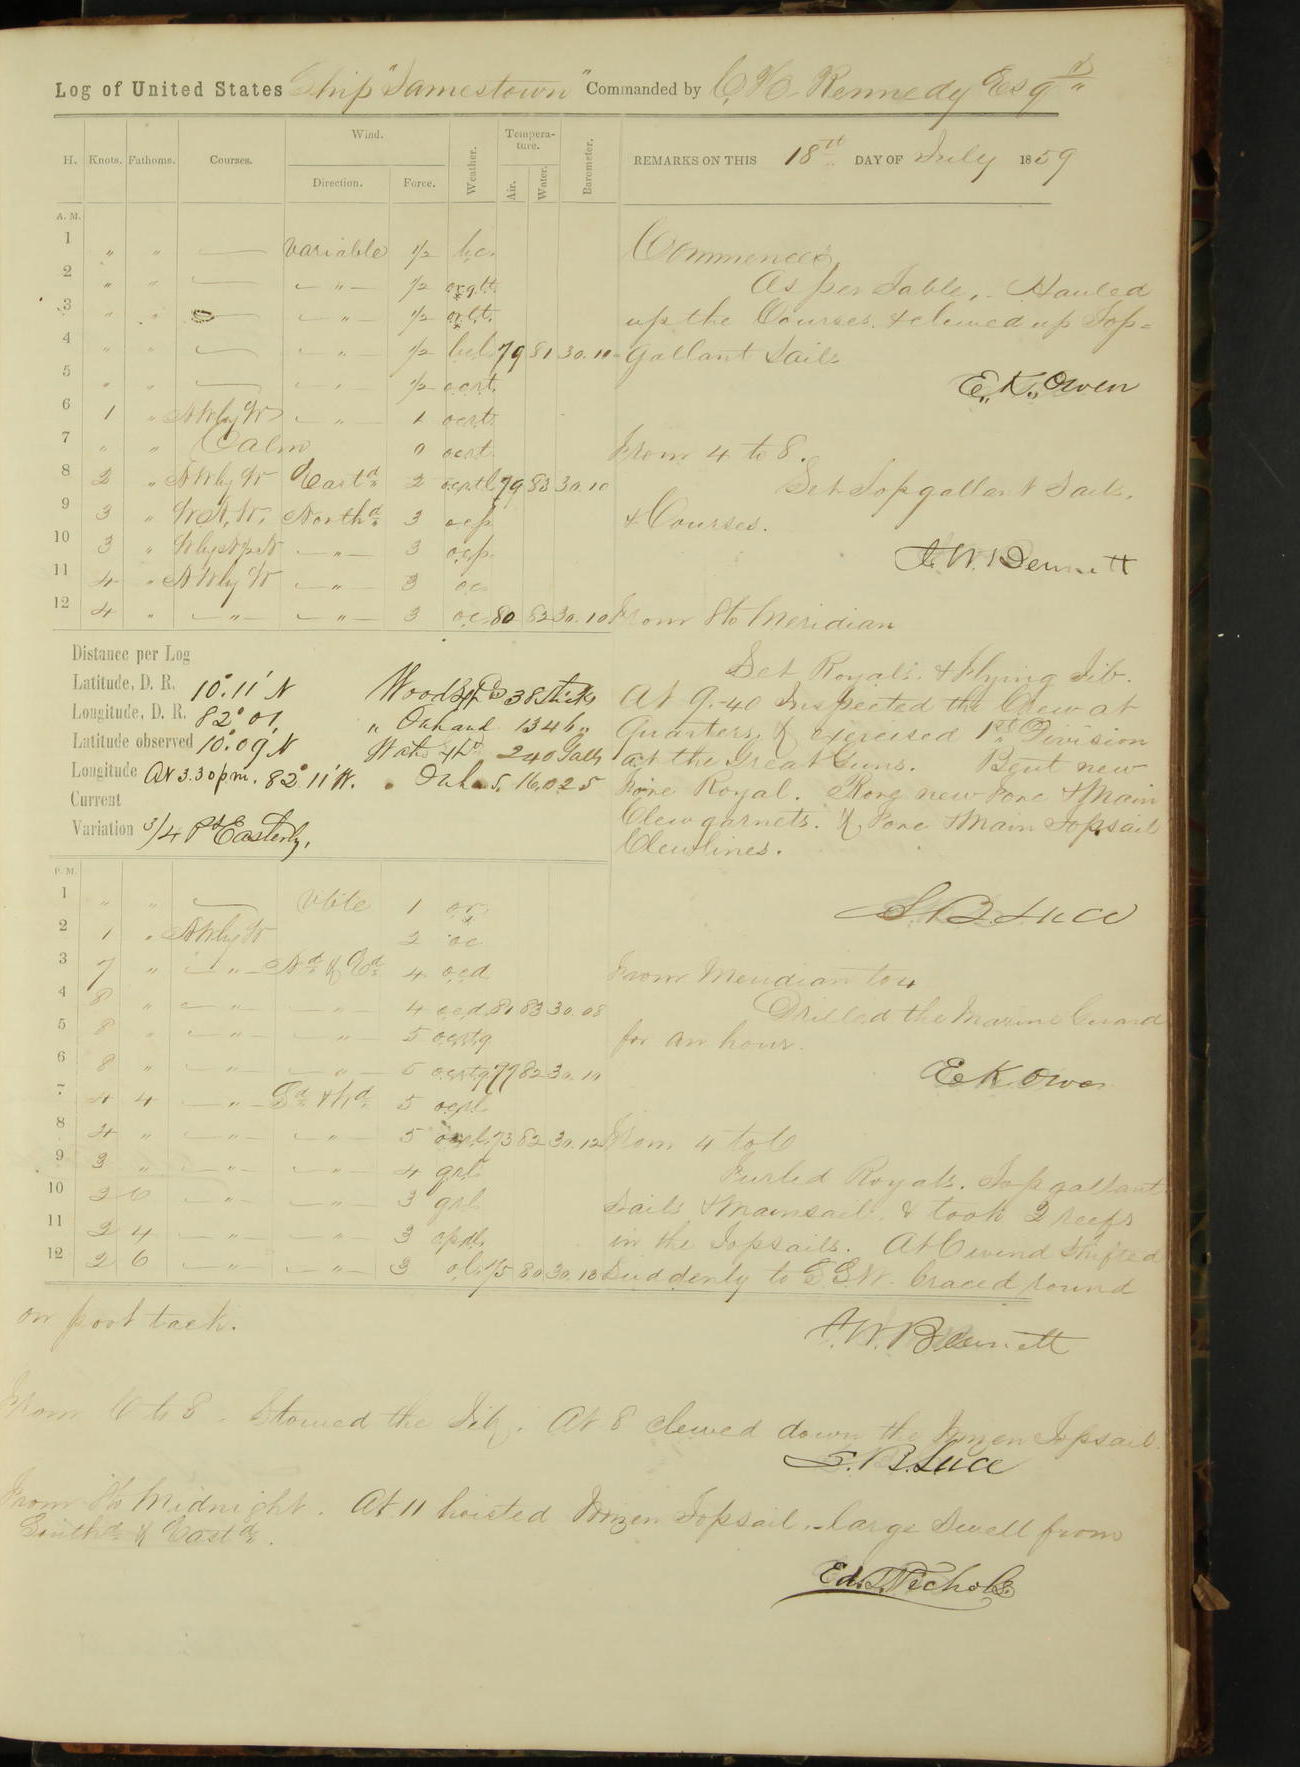 Log of United States Ship "Jamestown" Commanded by C. H. Kennedy Esqr
H. Knots. Fathoms. Courses. Wind. Direction. Force. Weather. Tempera-ture. Air. Water. Barometer.
REMARKS ON THIS 18th DAY OF July 1859
A. M.
1 " " — Variable 1/2 b.c.
2 " " — — " — 1/2 o.r.q.l.t.
3 " " — — " — 1/2 o.r.l.t.
4 " " — — " — 1/2 b.c.l. 79 81 30.10
5 " " — — " — 1/2 o.c.r.t.
6 1 " NW by W — " — 1 o.c.r.t.
7 " " Calm 0 o.c.r.t.
8 2 " NW by W Eastd 2 o.c.r.t.l. 79 83 30.10
9 3 " W.N.W. Northd 3 o.c.p.
10 3 " — " — 3 o.c.p.
11 4 " NW by W — " — 3 o.c.
12 4 " — " — — " — 3 o.c. 80 82 30.10
Commences
As per Table, Hauled
up the Courses & clewed up Top=
gallant Sails
E. K. Owen
From 4 to 8.
Set Topgallant Sails.
& Courses.
J. W. Bennett
From 8 to Meridian
Set Royals. & Flying Jib.
At 9.-40 Inspected the Crew at
Quarters, & exercised 1st Division
at the Great Guns. Bent new
Fore Royal. Rove new Fore & Main
Clewgarnets. & Fore & Main Topsail
Clewlines.
S. B. Luce
Distance per Log
Latitude, D. R. 10° 11' N
Longitude, D. R. 82° 01'
Latitude observed 10° 09' N
Longitude At 3.30 p.m. 82° 11' W.
Current
Variation 3/4 Pt Easterly.
Wood Expd 38 Sticks
" On hand 1346 "
Water Expd 240 Galls
" On h 16,025
P. M.
1 " " — Vble 1 o.r.
2 1 " NW by W 2 o.c
3 7 " — " — Nd & Ed 4 o.c.d
4 8 " — " — — " — 4 o.c.d. 81 83 30.08
5 8 " — " — — " — 5 o.c.r.t.q
6 8 " — " — — " — o.c.r.t.q 77 82 30.10
7 4 4 — " — Sd & Wd 5 o.c.r.l.
8 4 " — " — — " — 5 73 82 30.12
9 3 " — " — — " — 4 q.r.l.
10 2 6 — " — — " — 3 q.r.l.
11 2 4 — " — — " — 3
12 2 6 — " — — " — 3 o.l. 75 80 30.13
From Meridian to 4
Drilled the Marine Guard
for an hour.
E K Owen
From 4 to 6
Furled Royals. Topgallant
Sails & Mainsail. & took 2 reefs
in the Topsails. At 6 wind shifted
suddenly to braced round
on port tack.
J. W. Bennett
From 6 to 8. Stowed the Jib. At 8 clewed down the Mizen Topsail.
S. B. Luce
From 8 to Midnight. At 11 hoisted Mizen Topsail. – large Swell from
Southd & Eastd.
Ed. T. Nichols